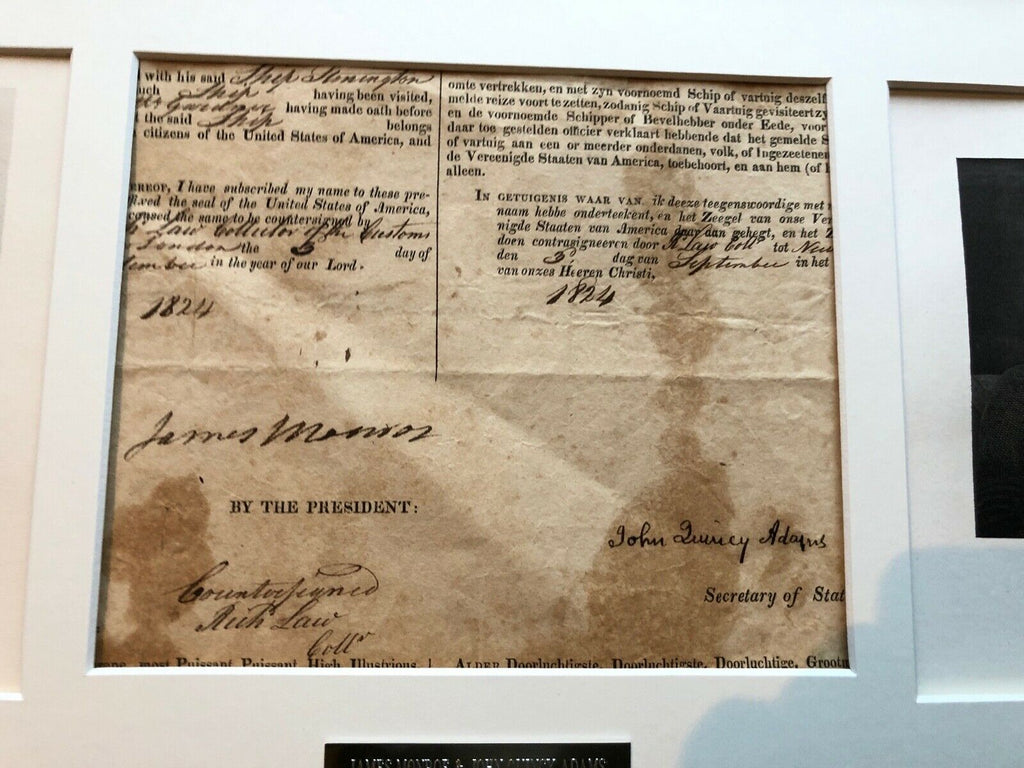 with his said Ship Stonington
uch Ship having been visited,
Gardner having made oath before
t the said Ship belongs
citizens of the United States of America, and
EREOF, I have subscribed my name to these pre-
the seal of the United States of America,
caused the same to be countersigned by
Law Collector of the Customs
London the 3 day of
tember in the year of our Lord.
1824
omte vertrekken, en met zyn voornoemd Schip of vartuig deszelf
melde reize voort te zetten, zodanig Schip of Vaartuig gevisiteert zy
en de voornoemde Schipper of Bevelhebber onder Eede, voor
daar toe gestelden officier verklaart hebbende dat het gemelde S
of vartuig aan een or meerder onderdanen, volk, of Ingezeetenen
de Vereenigde Staaten van America, toebehoort, en aan hem (of h
alleen.
IN GETUIGENIS WAAR VAN, ik deeze teegenswoordige met
naam hebbe onderteekent, en het Zeegel van onse Ver
nigde Staaten van America daar aan gehegt, en het
doen contrasigneeren door R Law Collr tot New
den 3 dag van September in het
van onzes Heeren Christi,
1824
James Monroe
BY THE PRESIDENT:
John Quincy Adams
Secretary of Stat
Countersigned
Richd Law
Collr
most Puissant, Puissant, High, Illustrious,
ALDER Doorluchtigste, Doorluchtigste, Doorluchtige, Groot
JAMES MONROE & JOHN QUINCY ADAMS